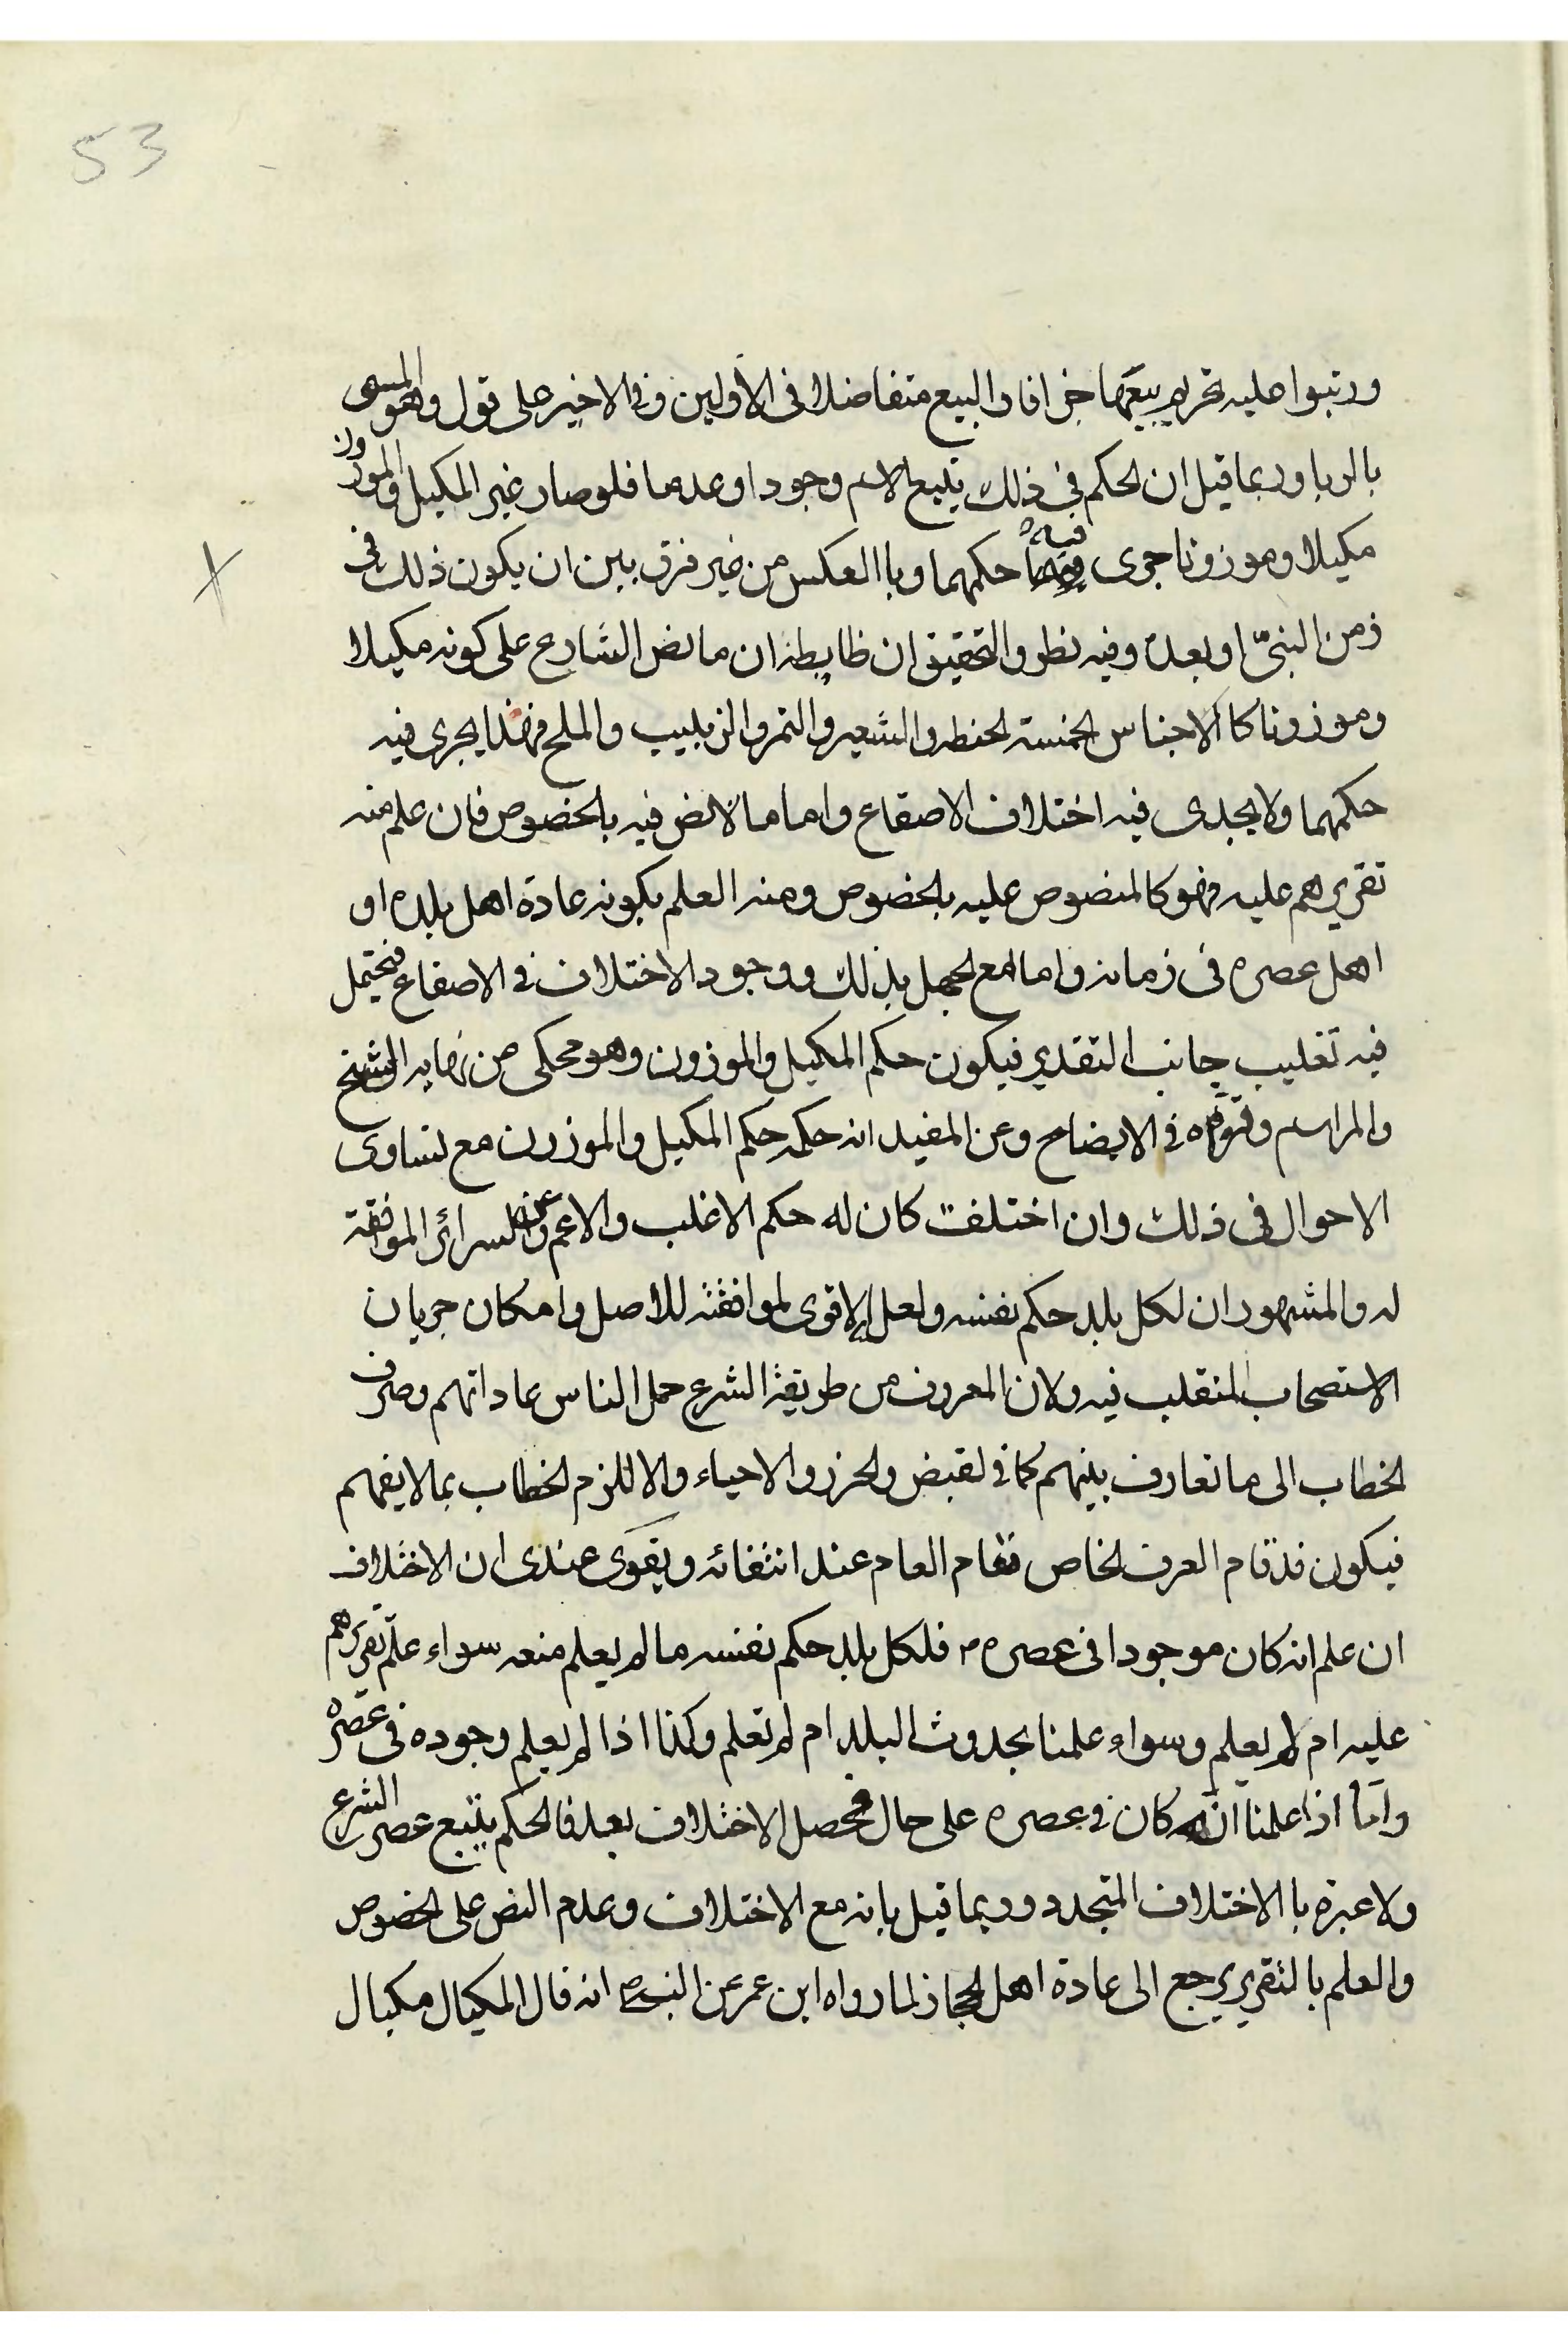 53
ورتبوا عليه تحريم بيعهما جزافا والبيع متفاضلا فى الأولين وفى الاخير على قول وهو المسمى
بالربا وربما قيل ان الحكم فى ذلك يتبع الاسم وجودا وعدما فلو صار غير المكيل والموزون
مكيلا وموزونا جرى فيه حكمهما وباالعكس من غير فرق بين ان يكون ذلك فى
زمن النبىّ او بعده وفيه نظر والتحقيق ان ظابطه ان ما نص الشارع على كونه مكيلا
وموزونا كاالاجناس الخمسة الحنطه والشعير والتمر والزبيب والملح فهذا يجرى فيه
حكمهما ولا يجدى فيه اختلاف الاصقاع واما ما لا نص فيه بالخصوص فان علم منه
تقريرهم عليه فهو كالمنصوص عليه بالخصوص ومنه العلم بكونه عادة اهل بلده او
اهل عصره فى زمانه واما مع الجهل بذلك ووجود الاختلاف فى الاصقاع فيحتمل
فيه تغليب جانب التقدير فيكون حكم المكيل والموزون وهو محكى عن نهايه الشيخ
والمراسم وقوّاه فى الايضاح وعن المفيد انه حكمه حكم المكيل والموزون مع تساوى
الاحوال فى ذلك وان اختلفت كان له حكم الاغلب والاعم وعن السرائر الموافقة
له والمشهور ان لكل بلد حكم نفسه ولعل الاقوى لموافقته للاصل وامكان جريان
الاستصحاب المنقلب فيه ولان المعروف من طريقة الشرع حمل الناس عاداتهم وصرف
الخطاب الى ما تعارف بينهم كما فى القبض والحرز والاحياء والا للزم الخطاب بما لا يفهم
فيكون قد قام العرف الخاص مقام العام عند انتفائه ويقوى عندى ان الاختلاف
ان علم انه كان موجودا فى عصره م فلكل بلد حكم نفسه ما لم يعلم منعه سواء علم تقريرهم
عليه ام لم يعلم وسواء علمنا بحدوث البلد ام لم نعلم وكذا اذا لم يعلم وجوده فى عصره
وأما اذا علمنا انه كان فى عصره على حال فحصل الاختلاف بعد فالحكم يتبع عصر الشرع
ولا عبرة باالاختلاف المتجدد وربما قيل بانه مع الاختلاف وعدم النص على الخصوص
والعلم بالتقرير يرجع الى عادة اهل الحجاز لما رواه ابن عمر عن النبى ص انه قال المكيال مكيال